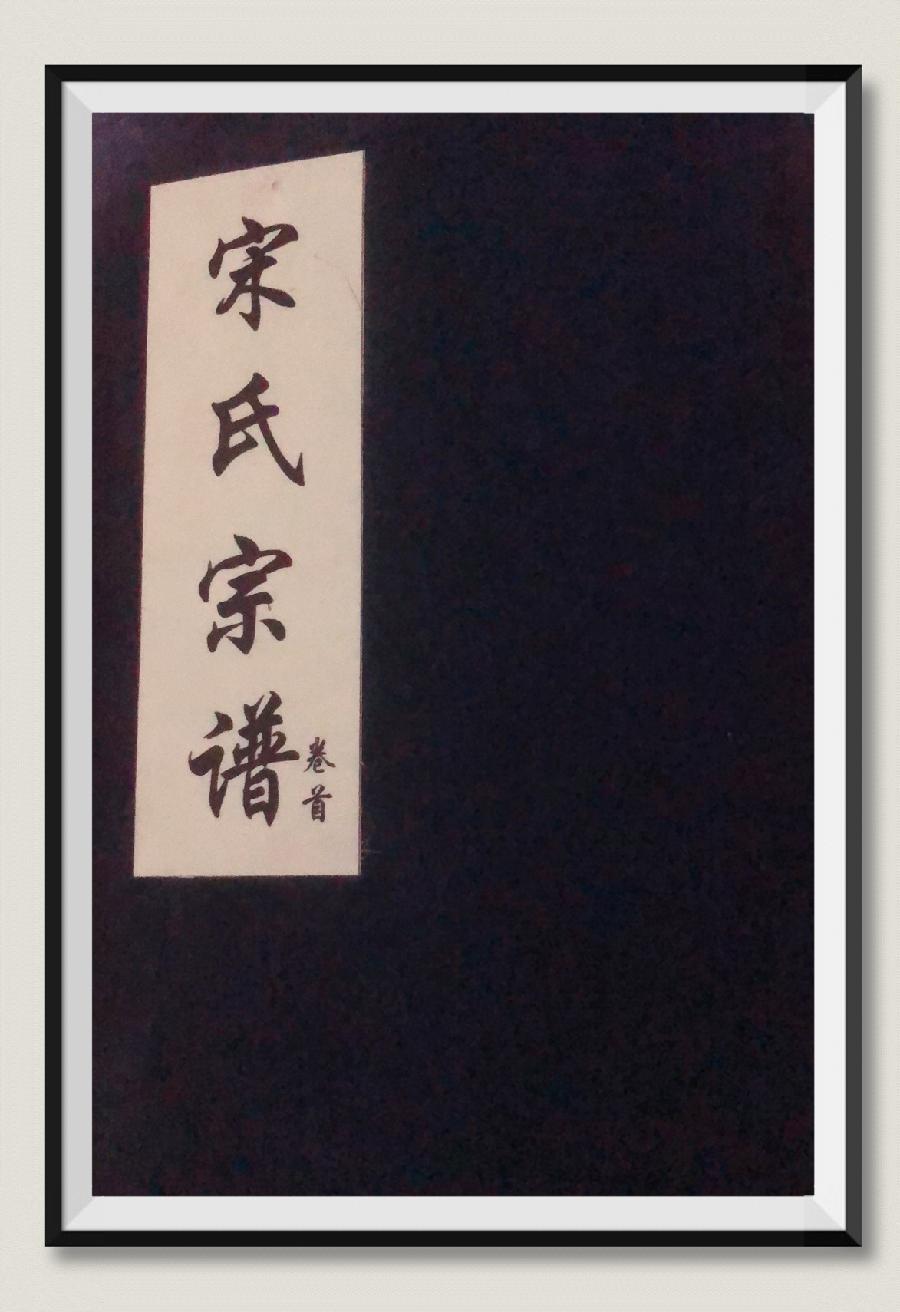 宋氏宗谱
卷首